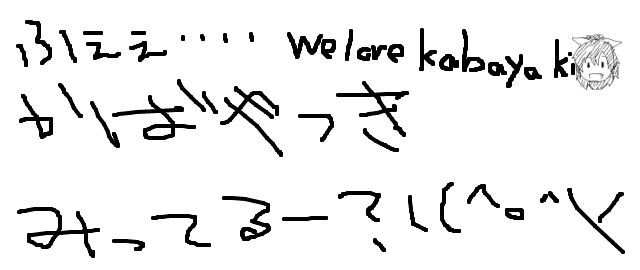 ふええ‥‥ We are kabayaki
がばやっき
みってるー?\(^o^)/